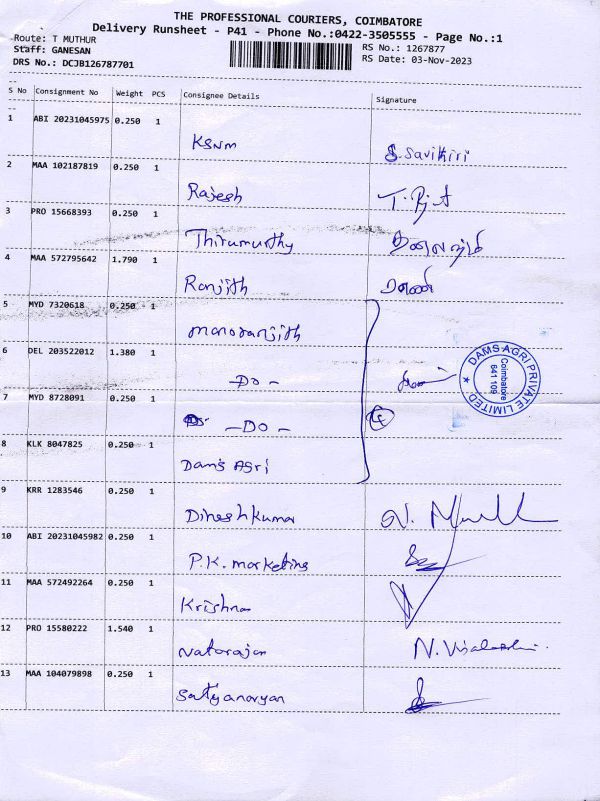 THE PROFESSIONAL COURIERS, COIMBATORE
Delivery Runsheet - P41 - Phone No.:0422-3505555 - Page No.:1
Route: T MUTHUR
Staff: GANESAN
DRS No.: DCJB126787701
RS No.: 1267877
RS Date: 03-Nov-2023
S No Consignment No Weight PCS Consignee Details Signature
1 ABI 20231045975 0.250 1
KSNM S. Savithiri
2 MAA 102187819 0.250 1
Rajesh
3 PRO 15668393 0.250 1
Thirumurthy
4 MAA 572795642 1.790 1
Ranjith
5 MYD 7320618 0.250 1
manoranjith
6 DEL 203522012 1.380 1
-DO-
DAMS AGRI PRIVATE LIMITED
Coimbatore
641 109
7 MYD 8728091 0.250 1
-DO- 4
8 KLK 8047825 0.250 1
Dams Agri
9 KRR 1283546 0.250 1
Dineshkumar
10 ABI 20231045982 0.250 1
P.K. marketing
11 MAA 572492264 0.250 1
Krishna
12 PRO 15580222 1.540 1
Natarajan
13 MAA 104079898 0.250 1
Satyanaryan